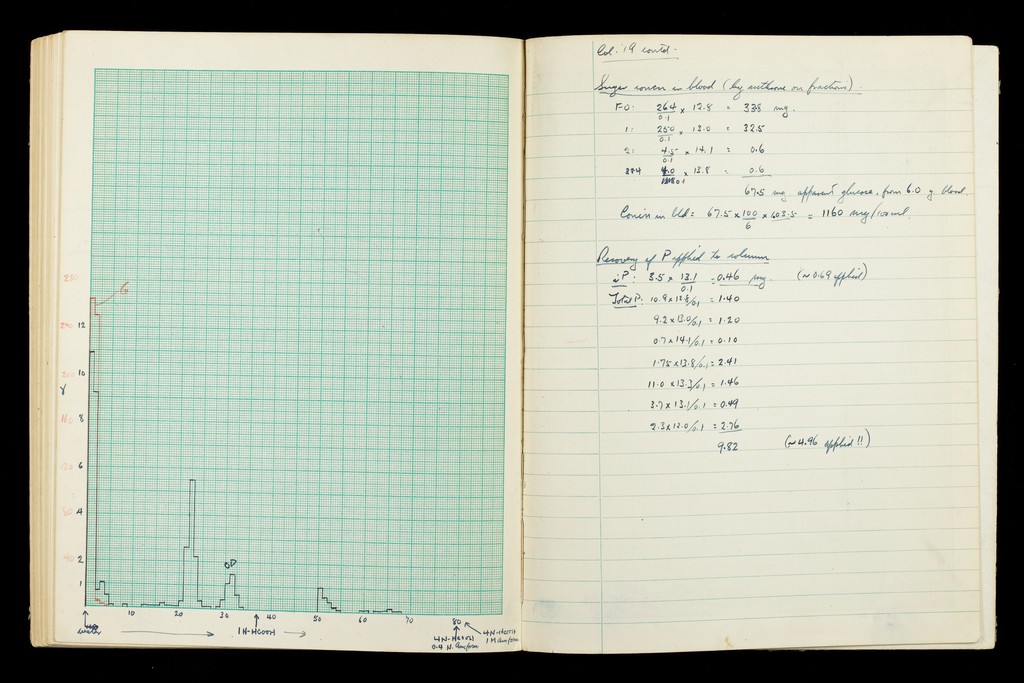 280
G
240 12
200 10
γ
160 8
120 6
80 4
40 2
1
OD
10 20 30 40 50 60 70 80
water
1N-HCOOH
4N-HCOOH
0.4 N. Am form
4N-HCOOH
1M Am form
Col. 19 contd.
Sugar concn in blood (by anthrone on fractions).
F0: 264/0.1 × 12.8 = 338 mg.
1: 250/0.1 × 13.0 = 32.5
2: 4.5/0.1 × 14.1 = 0.6
3+4 4.0/0.1 × 13.8 = 0.6
67.5 mg apparent glucose, from 6.0 g blood.
Concn in bld = 67.5 × 100/6 × 103.5 = 1160 mg/100 ml.
Recovery of P applied to column
iP: 3.5 × 13.1/0.1 = 0.46 mg. (~ 0.69 applied)
Total P: 10.9 × 12.8/0.1 = 1.40
9.2 × 13.0/0.1 = 1.20
0.7 × 14.1/0.1 = 0.10
1.75 × 13.8/0.1 = 2.41
11.0 × 13.3/0.1 = 1.46
3.7 × 13.1/0.1 = 0.49
2.3 × 12.0/0.1 = 2.76
9.82 (~ 4.96 applied!!)